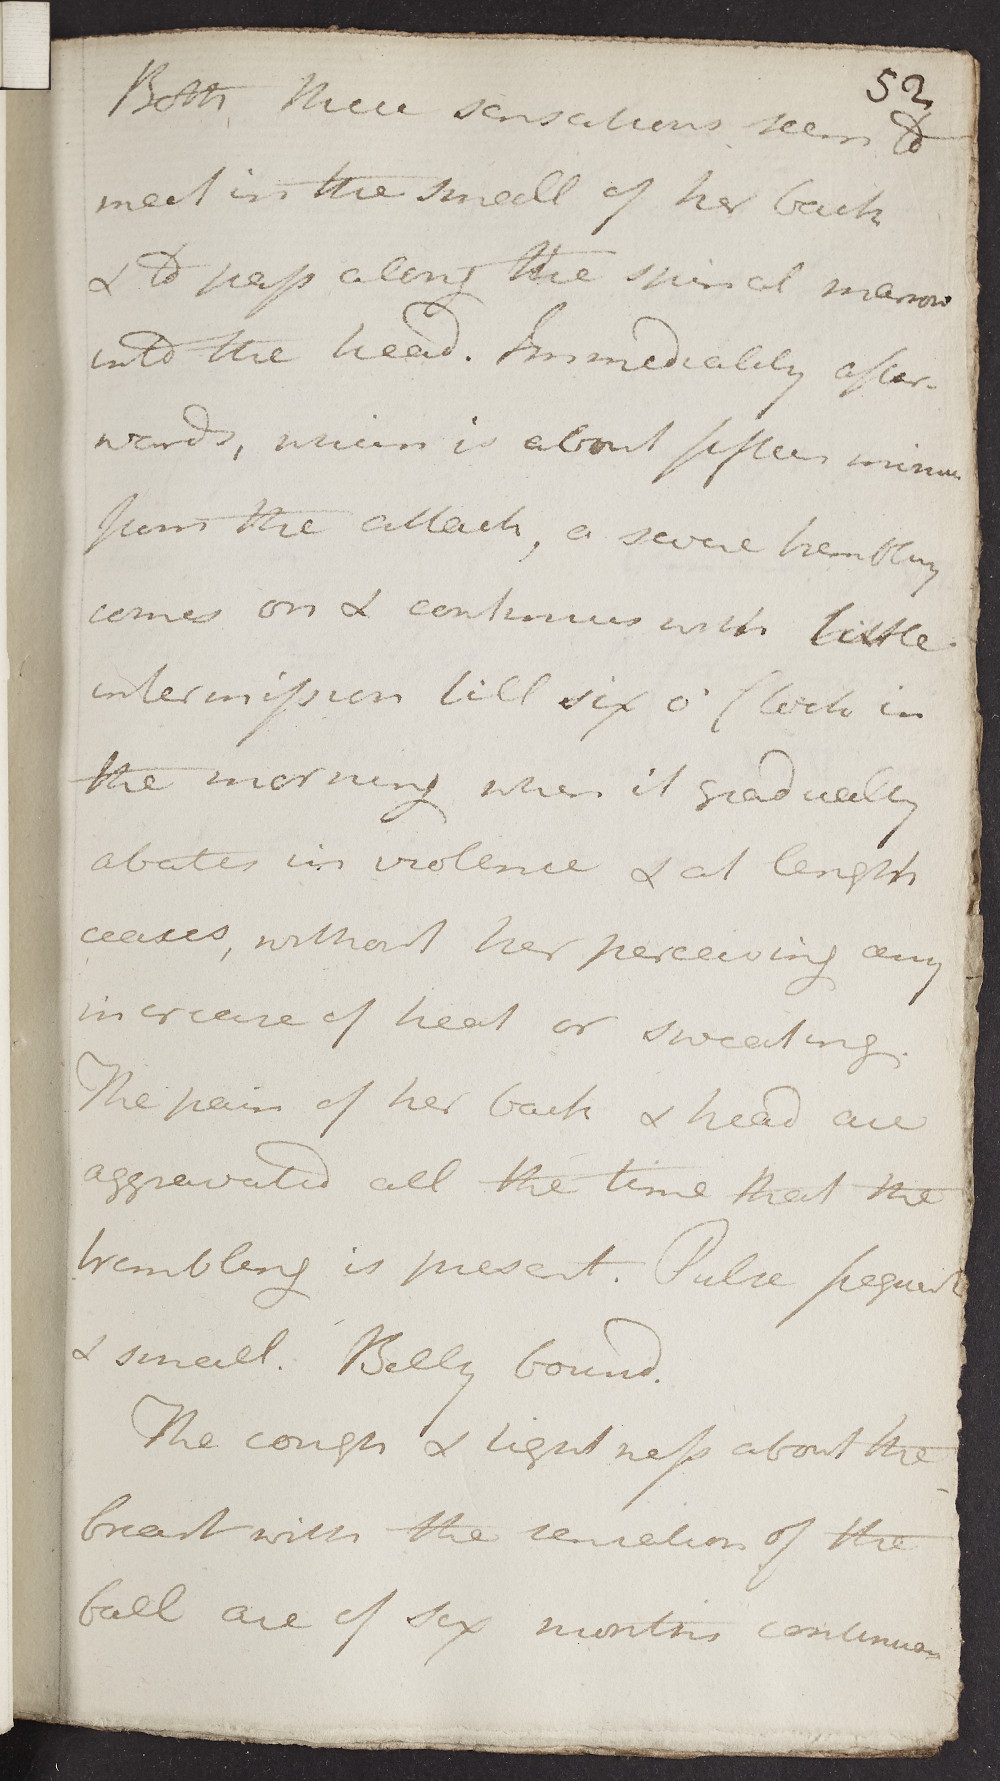 52
Both these sensations seem to
meet in the small of her back
& to pass along the spinal marrow
into the head. Immediately after-
wards, which is about fifteen minutes
from the attack, a severe trembling
comes on & continues with little
intermission till six o'Clock in
the morning when it gradually
abates in violence & at length
ceases, without her perceiving any
increase of heat or sweating.
The pain of her back & head are
aggravated all the time that the
trembling is present. Pulse frequent
& small. Belly bound.
The cough & tightness about the
breast with the sensation of the
ball are of six months continuance